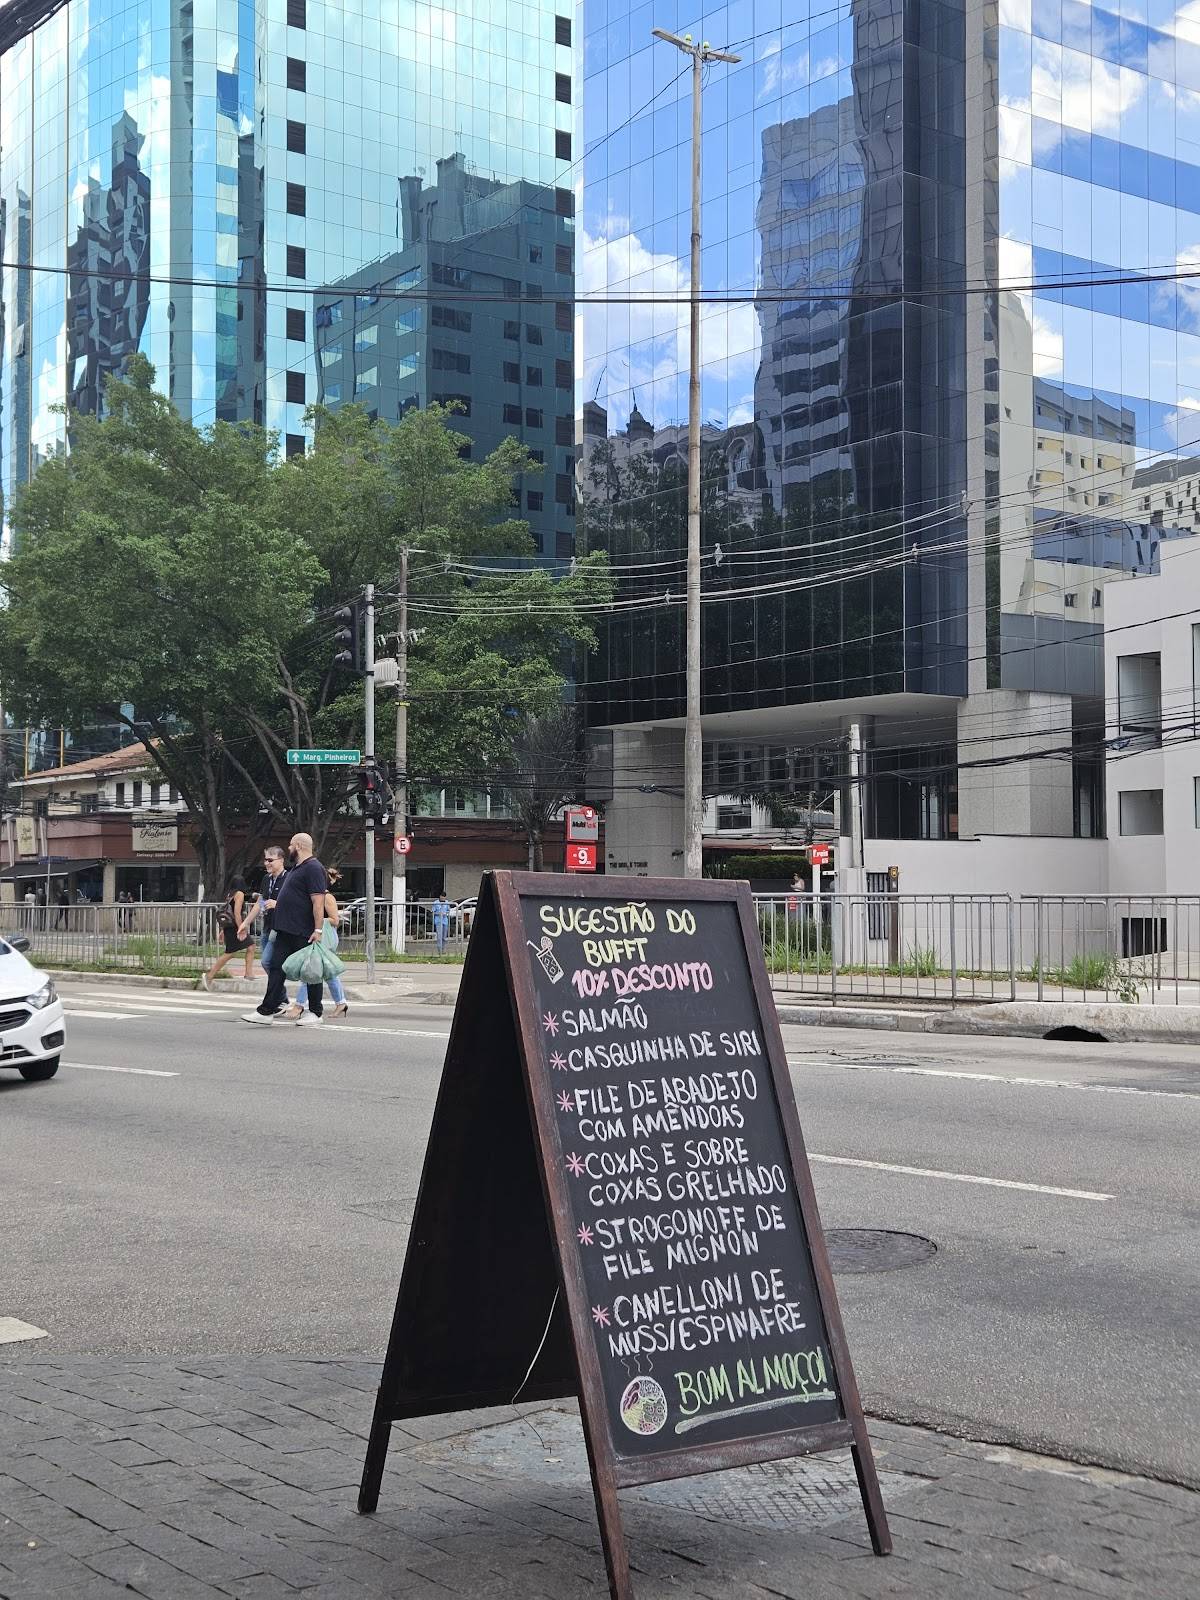 Marg. Pinheiros
E
9
SUGESTÃO DO
BUFFT
10% DESCONTO
* SALMÃO
* CASQUINHA DE SIRI
* FILE DE ABADEJO
COM AMÊNDOAS
* COXAS E SOBRE
COXAS GRELHADO
* STROGONOFF DE
FILE MIGNON
* CANELLONI DE
MUSS/ESPINAFRE
BOM ALMOÇO!